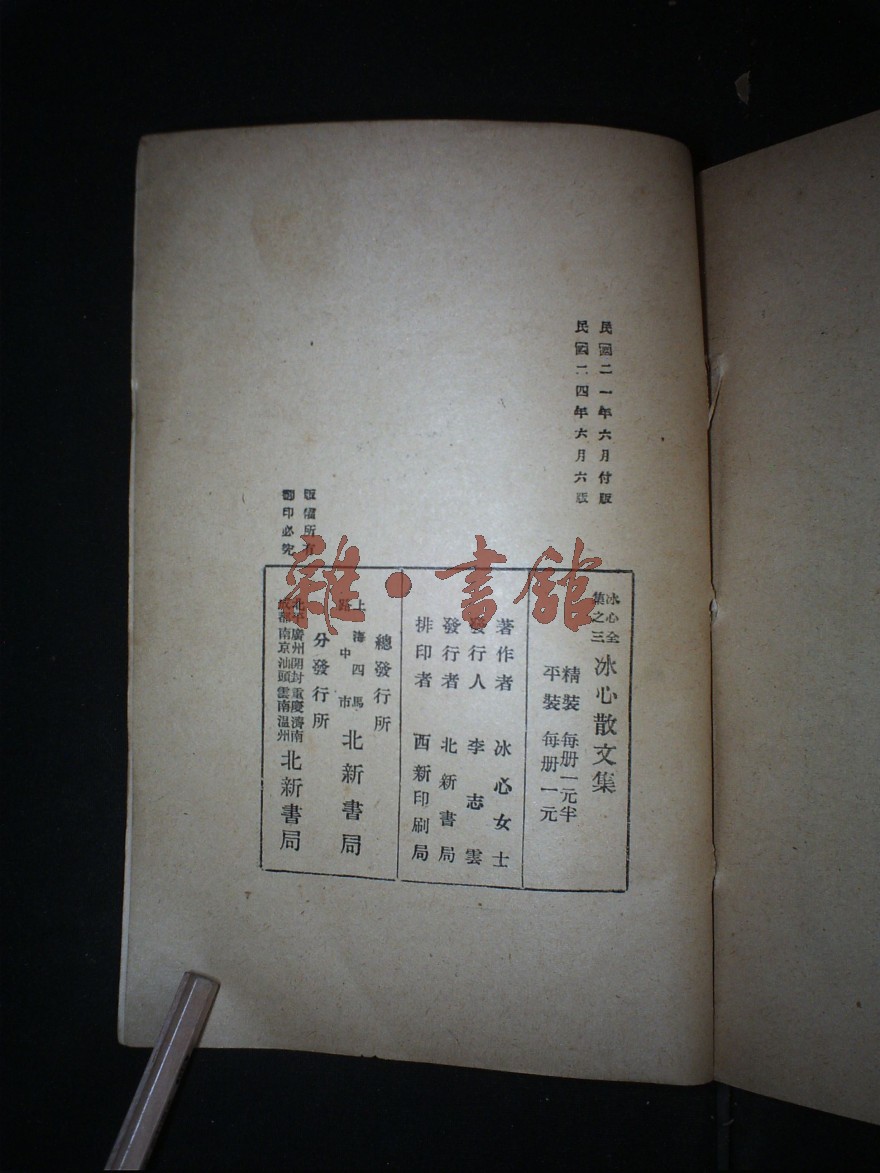 民國二一年六月付版
民國二四年六月六版
版權所有
翻印必究
冰心全
集之三
冰心散文集
精裝 每册一元半
平裝 每册一元
著作者 冰心女士
發行人 李志雲
發行者 北新書局
排印者 西新印刷局
總發行所
上海四馬
路中市
北新書局
分發行所
北平廣州開封重慶濟南
成都南京汕頭雲南溫州
北新書局
雜·書館